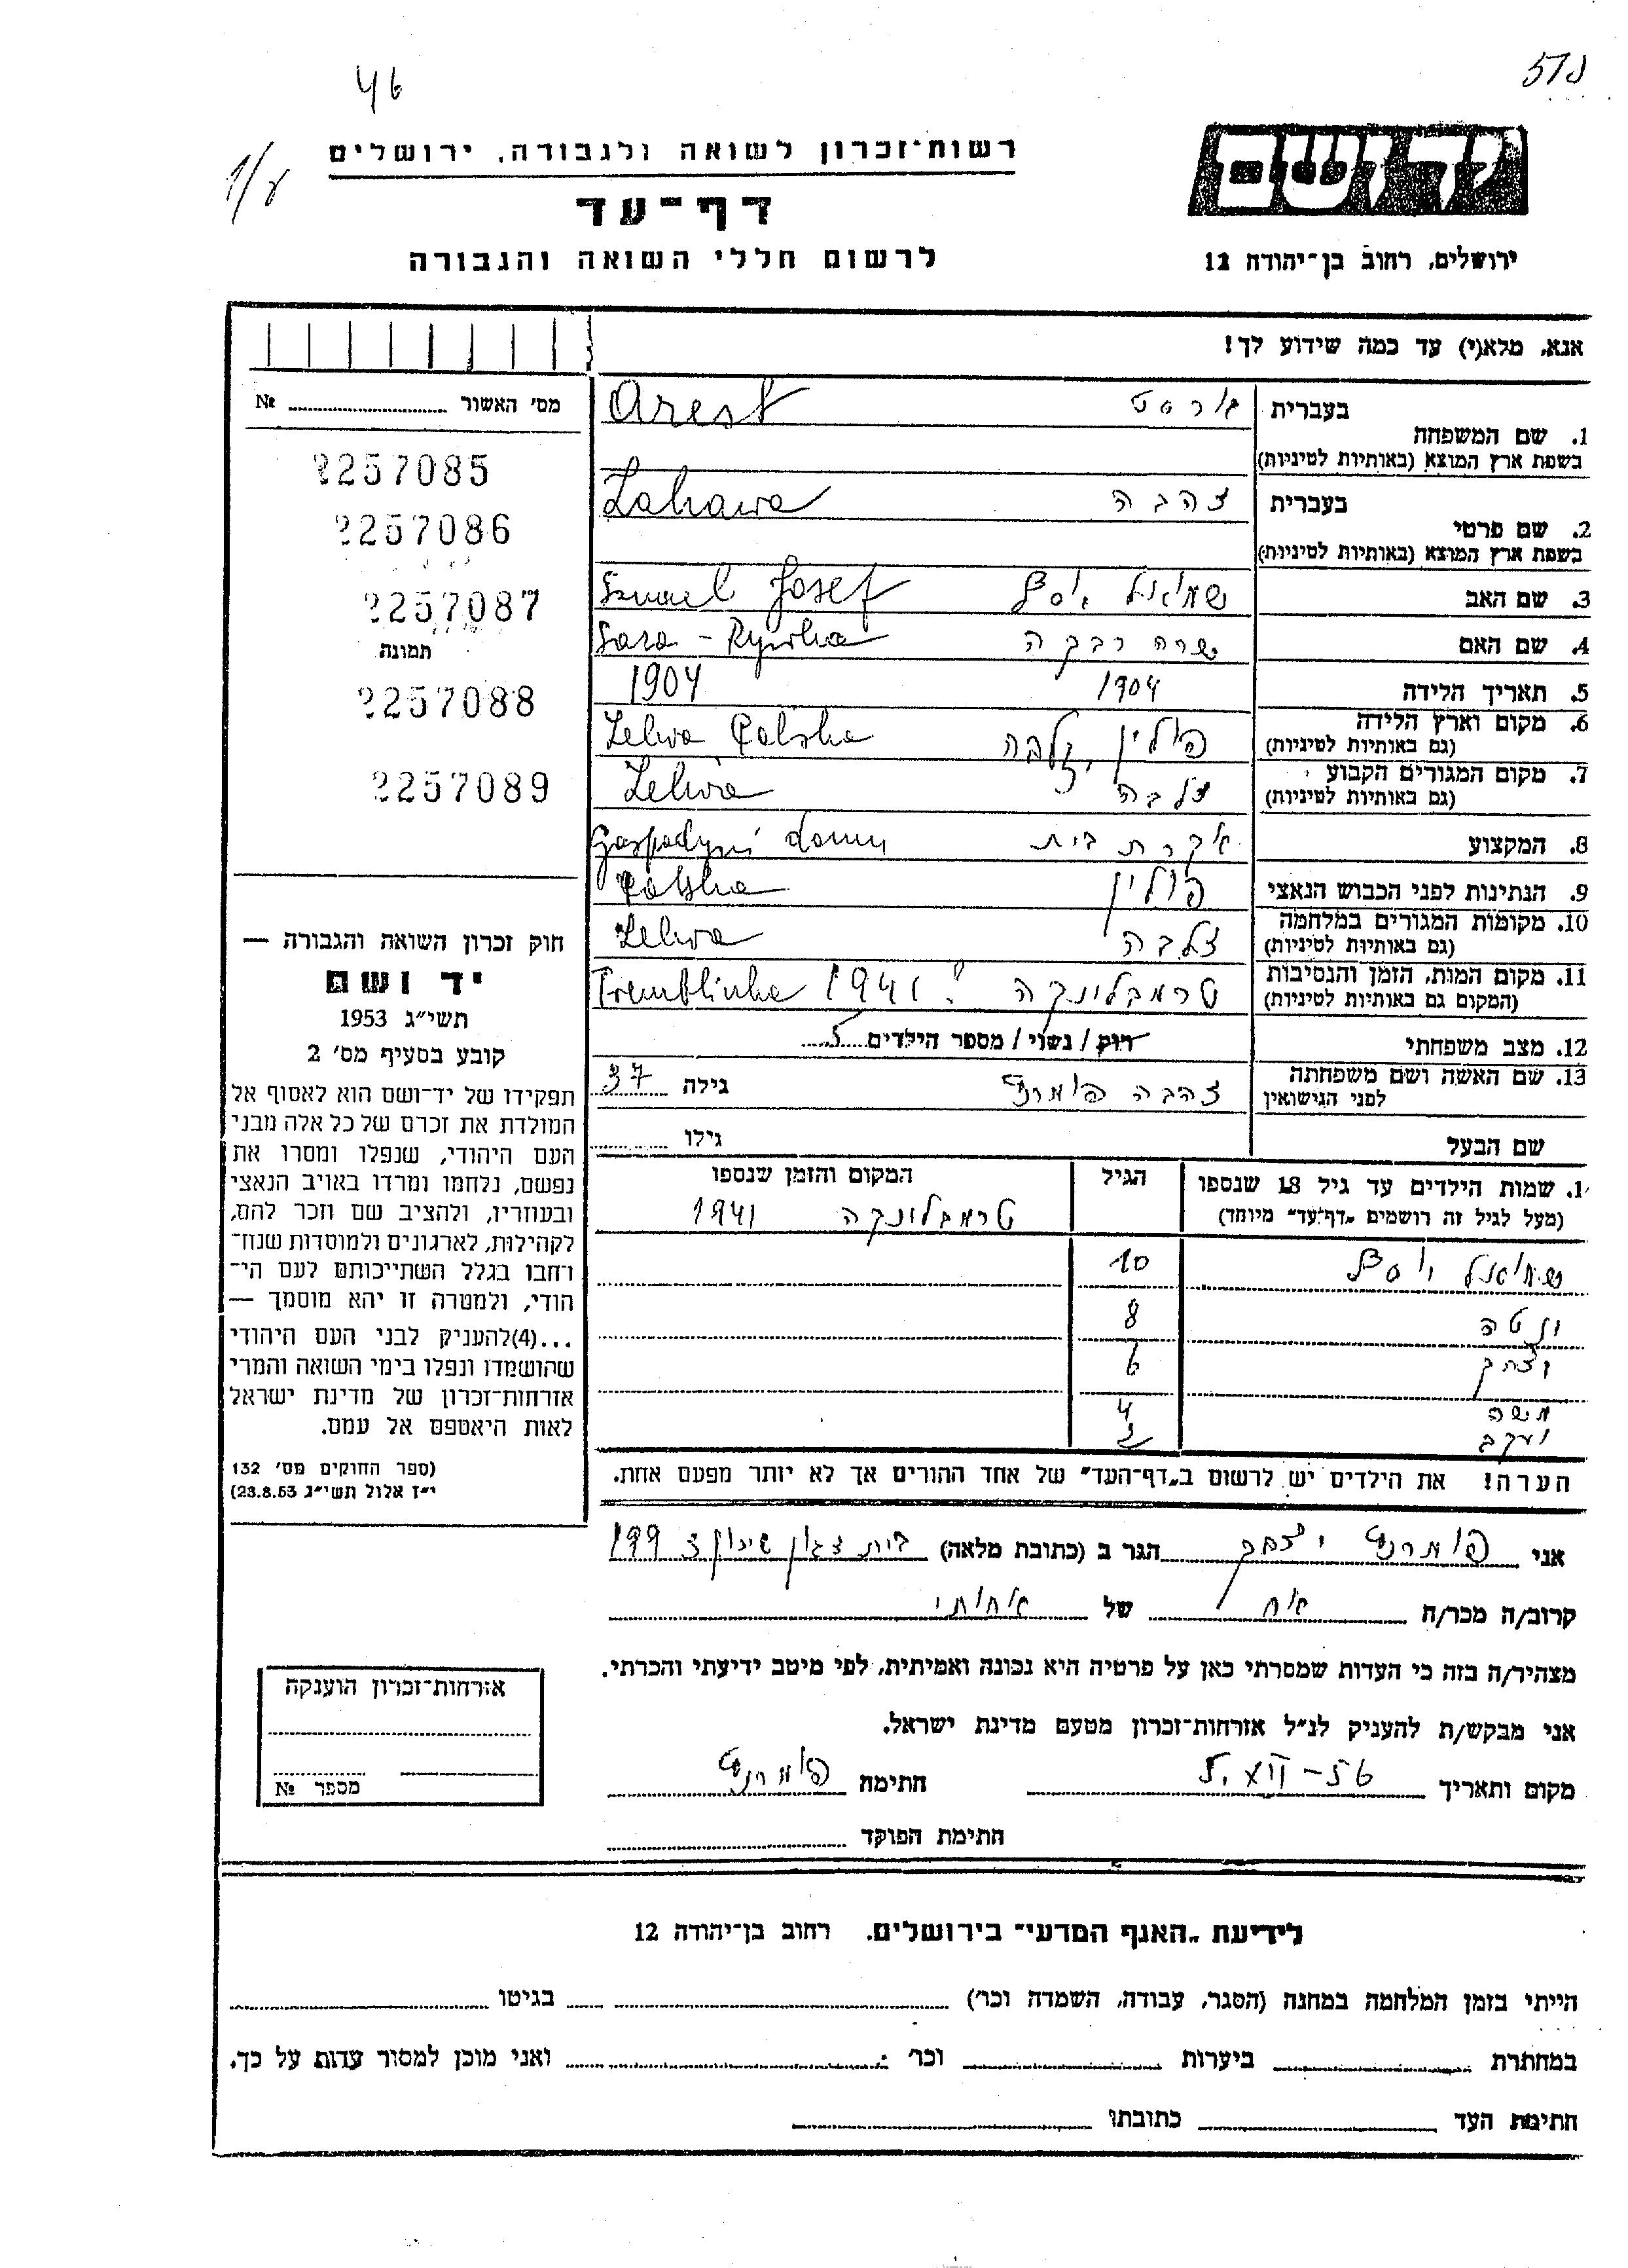 46
רשות־זכרון לשואה ולגבורה, ירושלים
דף־עד
לרשום חללי השואה והגבורה
יד ושם
ירושלים, רחוב בן־יהודה 12
אנא, מלא(י) עד כמה שידוע לך!
בעברית
1. שם המשפחה
בשפת ארץ המוצא (באותיות לטיניות)
ארסט Arest
בעברית
2. שם פרטי
בשפת ארץ המוצא (באותיות לטיניות)
צהבה Zahawa
3. שם האב שמואל יוסף Szmuel Josef
4. שם האם שרה רבקה Sara - Rywka
5. תאריך הלידה 1904 1904
6. מקום וארץ הלידה
(גם באותיות לטיניות)
פולין, זלבה Zelwa Polska
7. מקום המגורים הקבוע
(גם באותיות לטיניות)
זלבה Zelwa
8. המקצוע עקרת בית Gospodyni domu
9. הנתינות לפני הכבוש הנאצי פולין Polska
10. מקומות המגורים במלחמה
(גם באותיות לטיניות)
זלבה Zelwa
11. מקום המות, הזמן והנסיבות
(המקום גם באותיות לטיניות)
טרמבלינקה Tremblinka 1941 ?
12. מצב משפחתי רוק / נשוי / מספר הילדים 5
13. שם האשה ושם משפחתה
לפני הנישואין
צהבה פומרנץ גילה 37
שם הבעל גילו
1. שמות הילדים עד גיל 18 שנספו
(מעל לגיל זה רושמים "דף־עד" מיוחד)
הגיל
המקום והזמן שנספו
טרמבלינקה 1941
שמואל יוסף 10
8
יצחק 6
משה 4
יעקב
הערה! את הילדים יש לרשום ב"דף־העד" של אחד ההורים אך לא יותר מפעם אחת.
אני פומרנץ יצחק הגר ב (כתובת מלאה) בית דגון שיכון 199
קרוב/ה מכר/ה אח של אחותי
מצהיר/ה בזה כי העדות שמסרתי כאן על פרטיה היא נכונה ואמיתית, לפי מיטב ידיעתי והכרתי.
אני מבקש/ת להעניק לנ"ל אזרחות־זכרון מטעם מדינת ישראל.
מקום ותאריך חתימה פומרנץ
חתימת הפוקד
מס׳ האשור №
2257085
2257086
2257087
תמונה
2257088
2257089
חוק זכרון השואה והגבורה —
יד ושם
תשי"ג 1953
קובע בסעיף מס׳ 2
תפקידו של יד־ושם הוא לאסוף אל
המולדת את זכרם של כל אלה מבני
העם היהודי, שנפלו ומסרו את
נפשם, נלחמו ומרדו באויב הנאצי
ובעוזריו, ולהציב שם וזכר להם,
לקהילות, לארגונים ולמוסדות שנח־
רחבו בגלל השתייכותם לעם הי־
הודי, ולמטרה זו יהא מוסמך —
...(4)להעניק לבני העם היהודי
שהושמדו ונפלו בימי השואה והמרי
אזרחות־זכרון של מדינת ישראל
לאות היאספם אל עמם.
(ספר החוקים מס׳ 132
י"ז אלול תשי"ג 23.8.53)
אזרחות־זכרון הוענקה
מספר №
לידיעת "האגף המדעי" בירושלים. רחוב בן־יהודה 12
הייתי בזמן המלחמה במחנה (הסגר, עבודה, השמדה וכר׳) בגיטו
במחתרת ביערות וכר׳ ואני מוכן למסור עדות על כך.
חתימת העד כתובתו